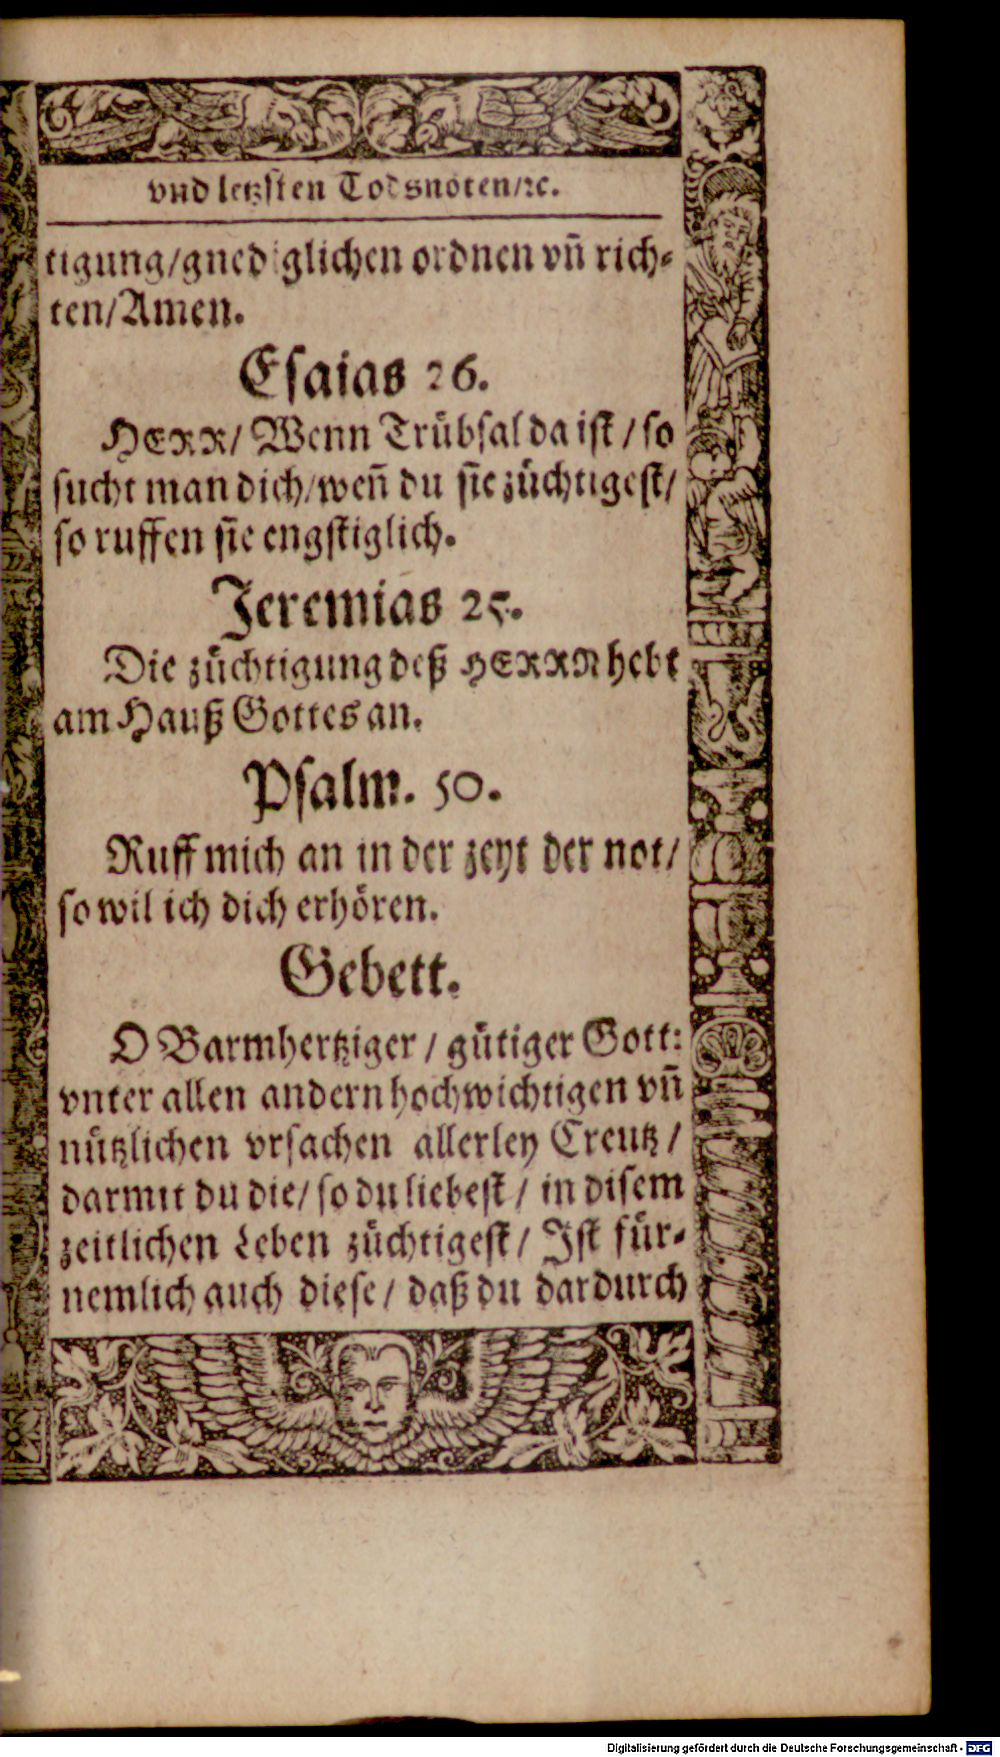 vnd letzsten Todsnöten/ꝛc.
tigung/gnediglichen ordnen vn̄ rich⸗
ten/Amen.
Esaias 26.
HERR/ Wenn Trübsal da ist / so
sucht man dich/wen̄ du sie züchtigest/
so ruffen sie engstiglich.
Jeremias 25.
Die züchtigung deß HERRN hebt
am Hauß Gottes an.
Psalm. 50.
Ruff mich an in der zeyt der not/
so wil ich dich erhören.
Gebett.
O Barmhertziger / gütiger Gott:
vnter allen andern hochwichtigen vn̄
nützlichen vrsachen allerley Creutz /
darmit du die/ so du liebest / in disem
zeitlichen Leben züchtigest / Ist für⸗
nemlich auch diese / daß du dardurch
Digitalisierung gefördert durch die Deutsche Forschungsgemeinschaft - DFG